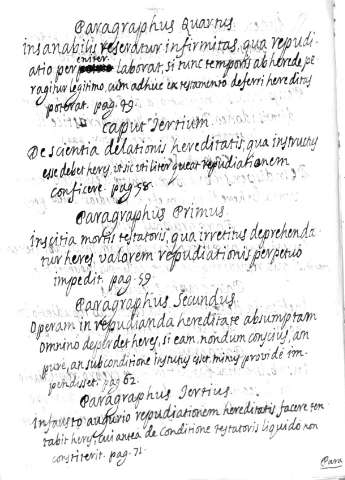 Paragraphus Quartus.
insanabilis reseratur infirmitas, qua repudi-
eniter
atio per laborat, si tunc temporis ab herede pe
ragitur legitimo, cum adhuc ex testamento deferri hereditas
poterat. pag. 49.
Caput Tertium
De scientia delationis hereditatis, qua instructus
esse debet heres, ut sic utiliter queat repudiationem
conficere. pag. 58.
Paragraphus Primus
Inscitia mortis testatoris, qua irretitus deprehenda-
tur heres, valorem repudiationis perpetuo
impedit. pag. 59
Paragraphus Secundus.
Operam in repudianda hereditate absumptam
omnino deperdet heres, si eam nondum conscius, an
pure, an sub conditione institutus esset minus provide im-
pendisset. pag 62.
Paragraphus Tertius.
Infausto augurio repudiationem hereditatis facere ten
tabit heres, cui antea de conditione testatoris liquido non
constiterit. pag. 71.
Para